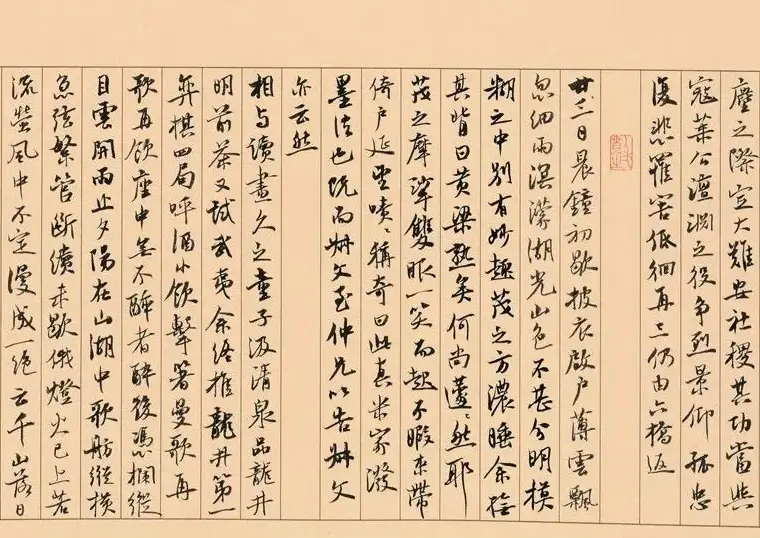 塵之際宣大難安社稷其功當與
寇萊公澶淵之役爭烈景仰孤忠
復悲羅害低徊再三仍由六橋返
廿三日晨鐘初歇披衣啟戶薄雲飄
忽細雨溟濛湖光山色不甚分明模
糊之中別有妙趣茂之方濃睡余撼
其背曰黃粱熟矣何尚蘧〻然耶
茂之摩挲雙眼一笑而起不暇束帶
倚戶延望嘖〻稱奇曰此真米家潑
墨法也既而舛文至仲兄以告舛文
亦云然
相与續畫久之童子汲清泉品龍井
明前茶又試武夷余終推龍井第一
弈棋四局呼酒小飲擊箸曼歌再
歌再飲座中無不醉者醉後憑欄縱
目雲開雨止夕陽在山湖中歌舫縱橫
急弦繁管斷續未歇俄燈火已上若
流螢風中不定漫成一絕云千山落日